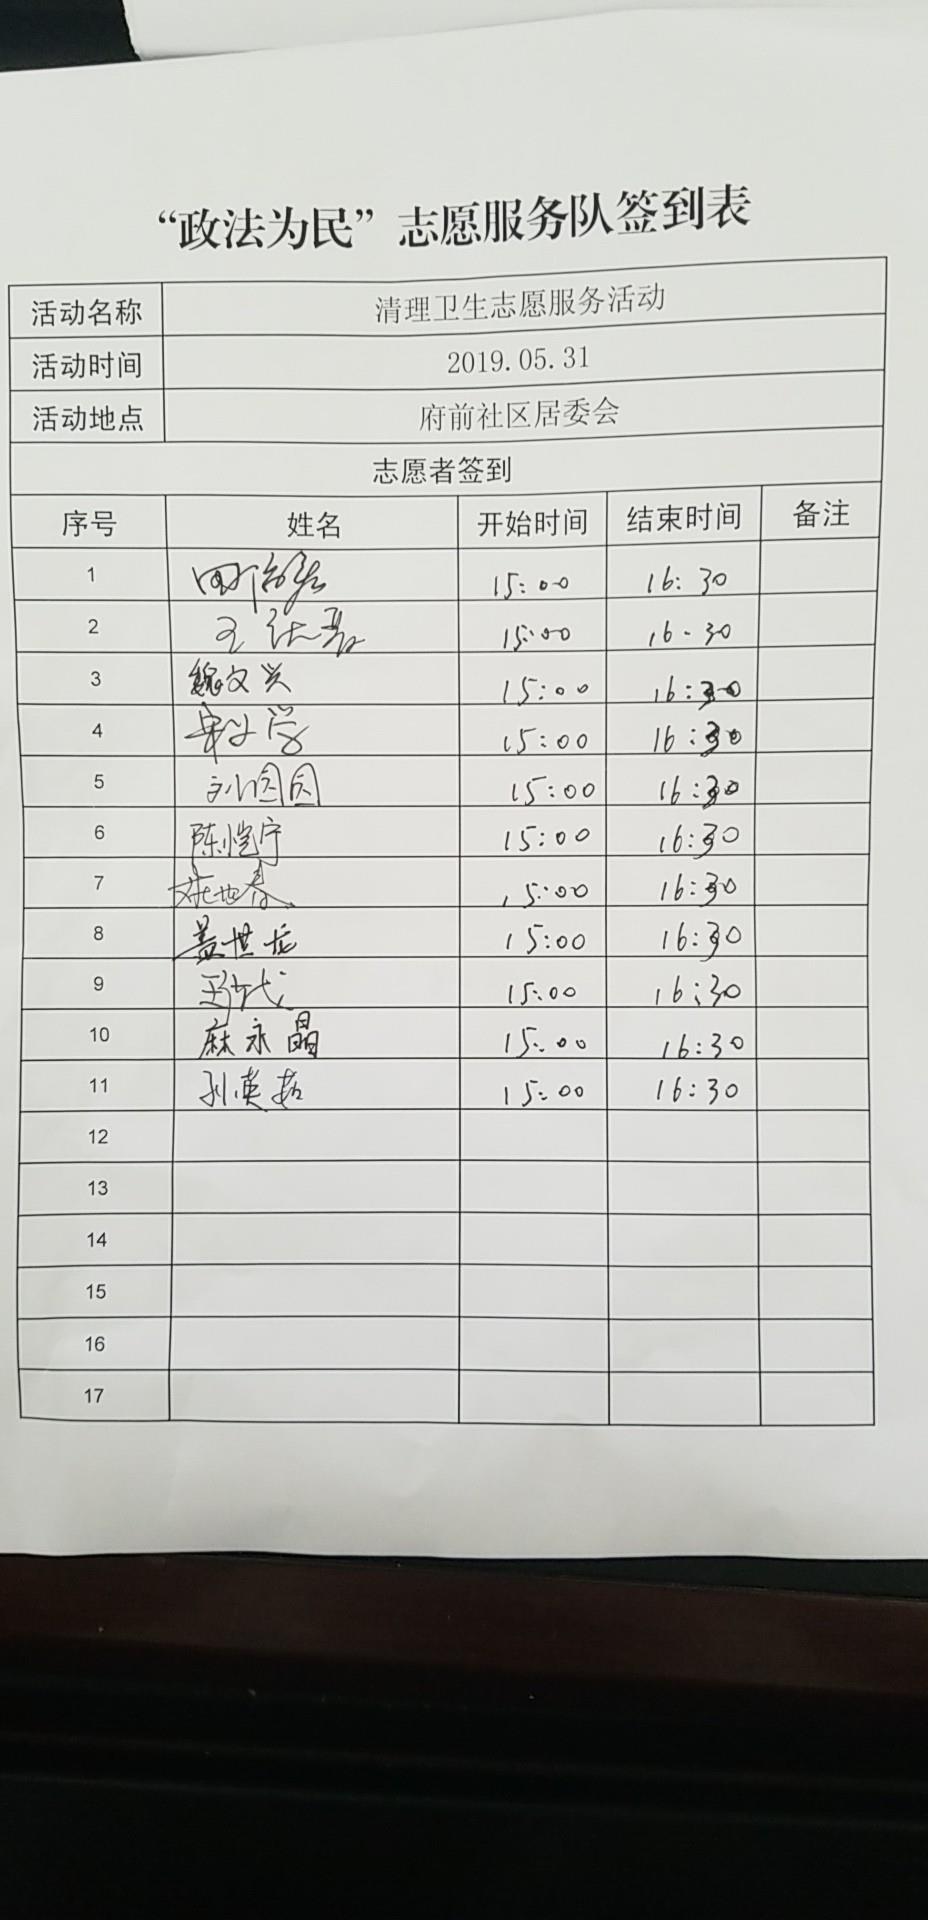 “政法为民”志愿服务队签到表
活动名称 清理卫生志愿服务活动
活动时间 2019.05.31
活动地点 府前社区居委会
志愿者签到
序号 姓名 开始时间 结束时间 备注
1 15:00 16:30
2 王 15:00 16:30
3 魏文兴 15:00 16:30
4 15:00 16:30
5 刘园园 15:00 16:30
6 陈恺宁 15:00 16:30
7 15:00 16:30
8 盖世龙 15:00 16:30
9 15:00 16:30
10 麻永晶 15:00 16:30
11 孙英茹 15:00 16:30
12
13
14
15
16
17